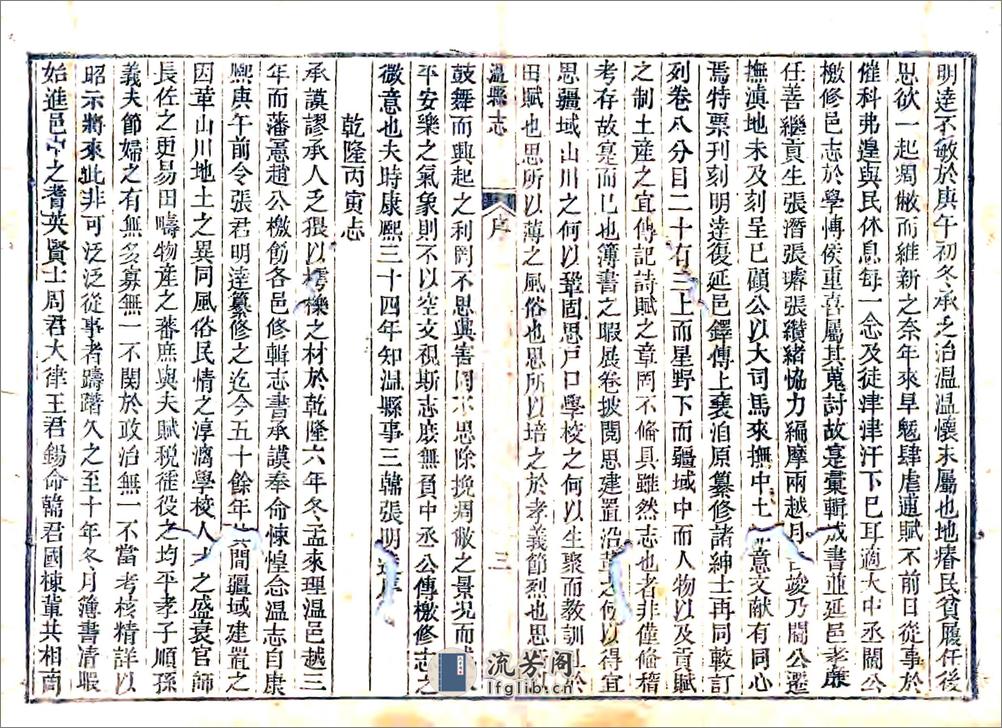 明達不敏於庚午初冬承乏治溫溫懷末屬也地瘠民貧履任後
思欲一起凋敝而維新之奈年來旱魃肆虐逋賦不前日從事於
催科弗遑與民休息每一念及徒津津汗下已耳適大中丞閻公
檄修邑志於學博侯重喜屬其蒐討故寔彙輯成書並延邑孝廉
任善繼貢生張濳張璿張纘緒恊力編摩兩越月告竣乃閻公遷
撫滇地未及刻呈巳顧公以大司馬來撫中土意文獻有同心
焉特票刊刻明逹復延邑鐸傅上襄洎原纂修諸紳士再同較訂
列卷八分目二十有三上而星野下而疆域中而人物以及貢賦
之制土產之宜傳記詩賦之章罔不俻具雖然志也者非僅俻稽
考存故寔而巳也簿書之暇展卷披閱思建置沿革之何以得宜
思疆域山川之何以鞏固思戶口學校之何以生聚而教訓其於
田賦也思所以薄之風俗也思所以培之於孝義節烈也思
溫縣志
序
三
鼓舞而興起之利罔不思興害罔不思除挽凋敝之景況而
平安樂之氣象則不以空文視斯志庶無負中丞公傳檄修志之
微意也夫時康熙三十四年知溫縣事三韓張明達序
乾隆丙寅志
承謨謬承人乏猥以樗櫟之材於乾隆六年冬孟來理溫邑越三
年而藩憲趙公檄飭各邑修輯志書承謨奉命悚惶念溫志自康
熙庚午前令張君明逹纂修之迄今五十餘年其間疆域建置之
因革山川地土之異同風俗民情之淳漓學校人才之盛衰官師
長佐之更易田疇物産之蕃庶與夫賦稅徭役之均平孝子順孫
義夫節婦之有無多寡無一不關於政治無一不當考核精詳以
昭示將來此非可泛泛從事者躊躇久之至十年冬月簿書清暇
始進邑中之耆英賢士周君大律王君錫命韓君國棟輩共相商
流芳阁
lfglib.cn